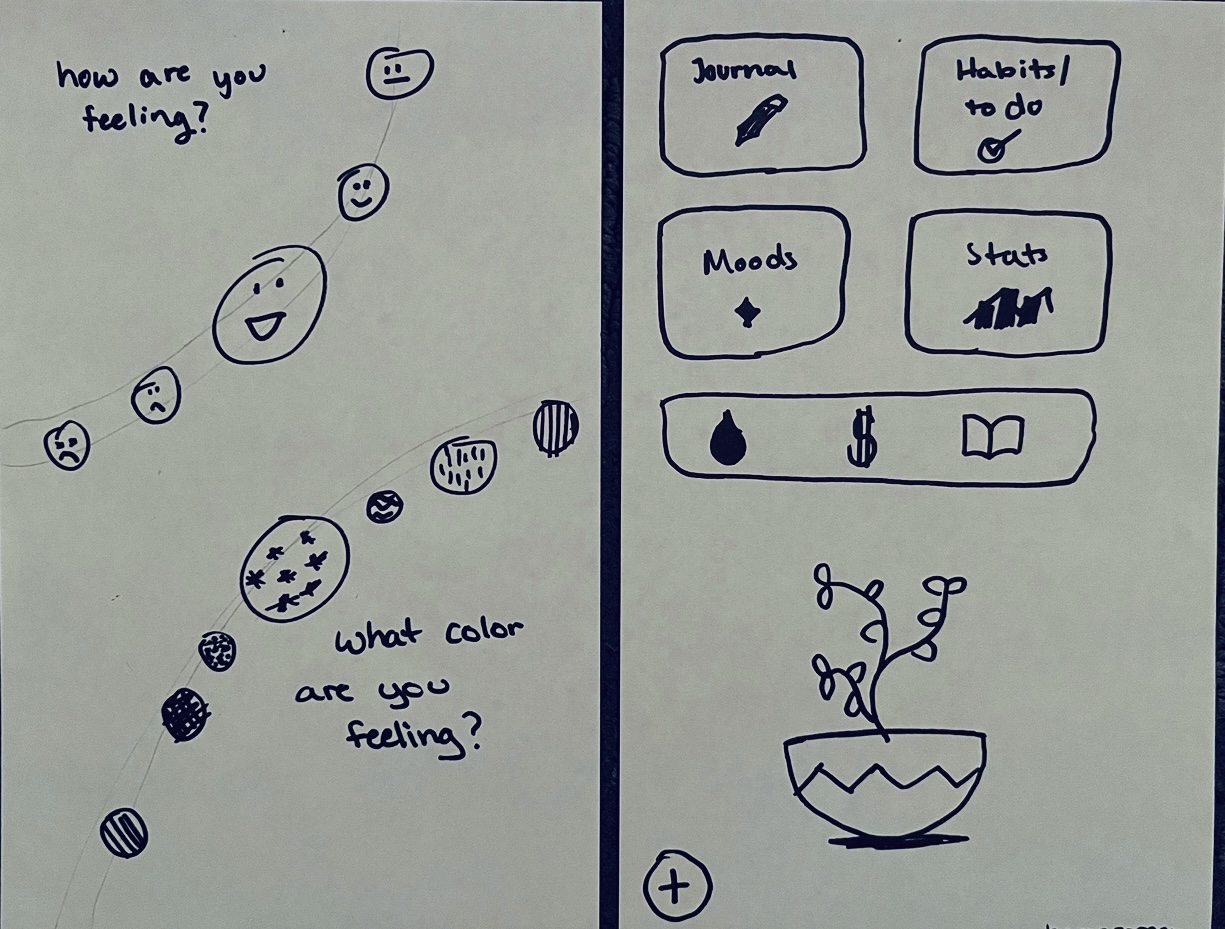 how are you
feeling?
what color
are you
feeling?
Journal
Habits/
to do
Moods
Stats
$
+